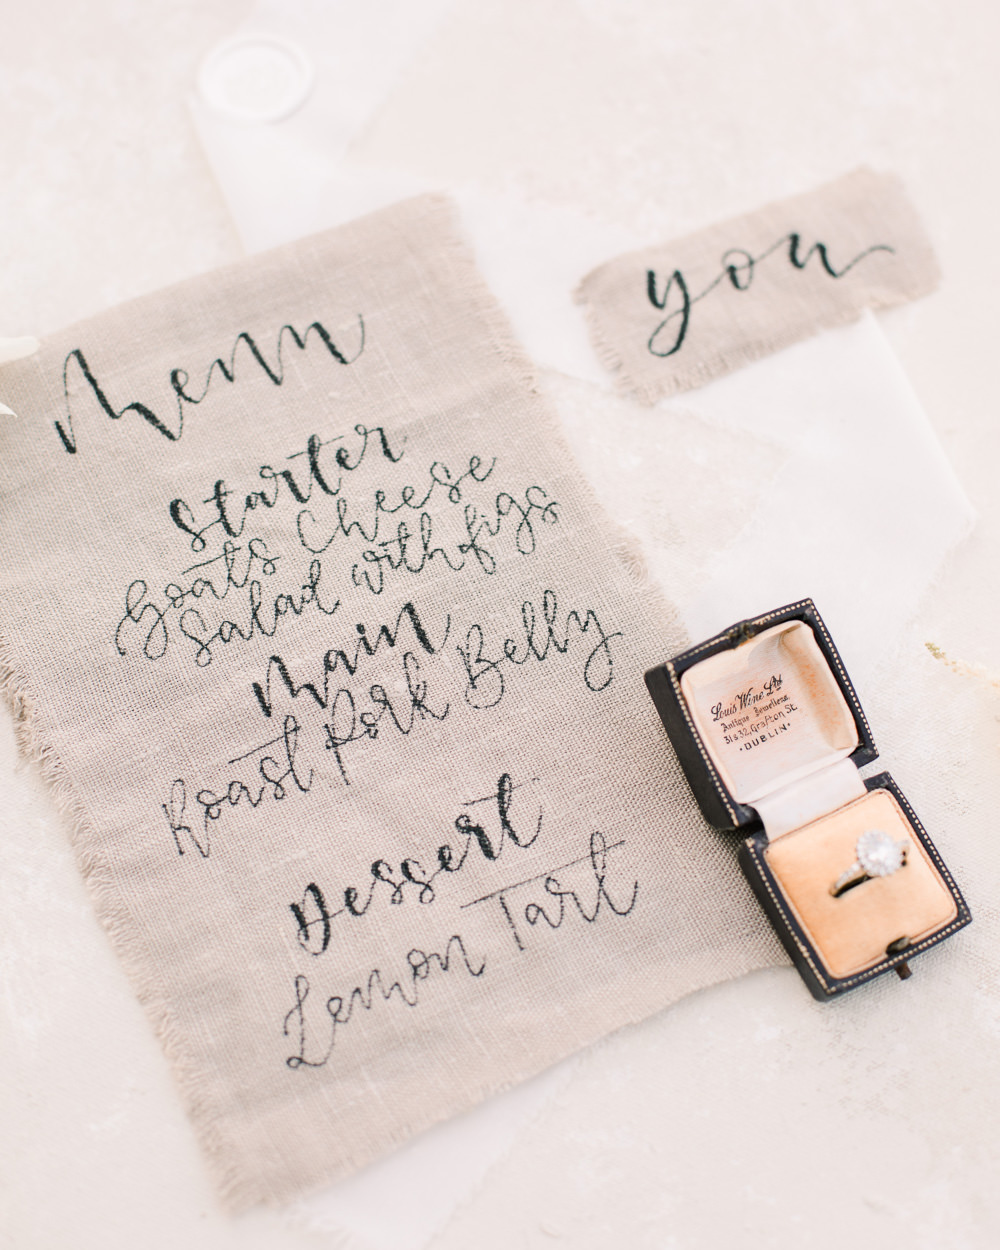 Menu
Starter
Goats Cheese
Salad with figs
Main
Roast Pork Belly
Dessert
Lemon Tart
you
Louis Wine Ltd
Antique Jewellers.
31&32, Grafton St.
·DUBLIN·